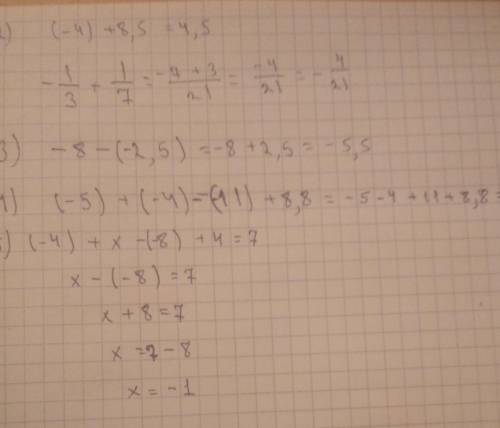 2) (-4) + 8,5 = 4,5
-1/3 + 1/7 = -7 + 3/21 = -4/21 = -4/21
3) -8 - (-2,5) = -8 + 2,5 = -5,5
4) (-5) + (-4) - (-11) + 8,8 = -5 - 4 + 11 + 8,8 =
5) (-4) + x - (-8) + 4 = 7
x - (-8) = 7
x + 8 = 7
x = 7 - 8
x = -1